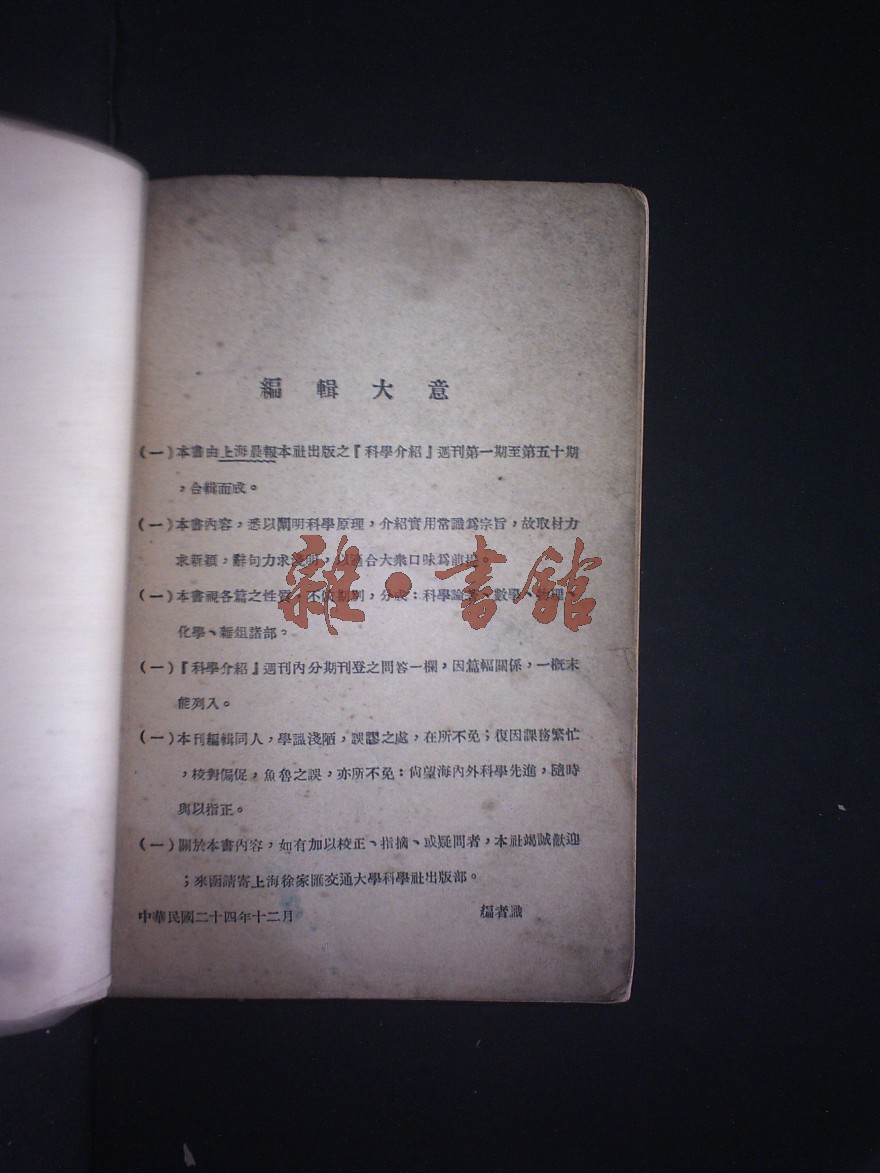 編輯大意
(一)本書由上海晨報本社出版之『科學介紹』週刊第一期至第五十期
，合輯而成。
(一)本書內容，悉以闡明科學原理，介紹實用常識爲宗旨，故取材力
求新穎，辭句力求淺明，以適合大衆口味爲前提。
(一)本書視各篇之性質，不依期別，分爲：科學論著、數學、物理、
化學、雜俎諸部。
(一)『科學介紹』週刊內分期刊登之問答一欄，因篇幅關係，一概未
能列入。
(一)本刊編輯同人，學識淺陋，誤謬之處，在所不免；復因課務繁忙
，校對侷促，魚魯之誤，亦所不免：尙望海內外科學先進，隨時
與以指正。
(一)關於本書內容，如有加以校正、指摘、或疑問者，本社竭誠歡迎
；來函請寄上海徐家匯交通大學科學社出版部。
中華民國二十四年十二月 編者識
雜·書館